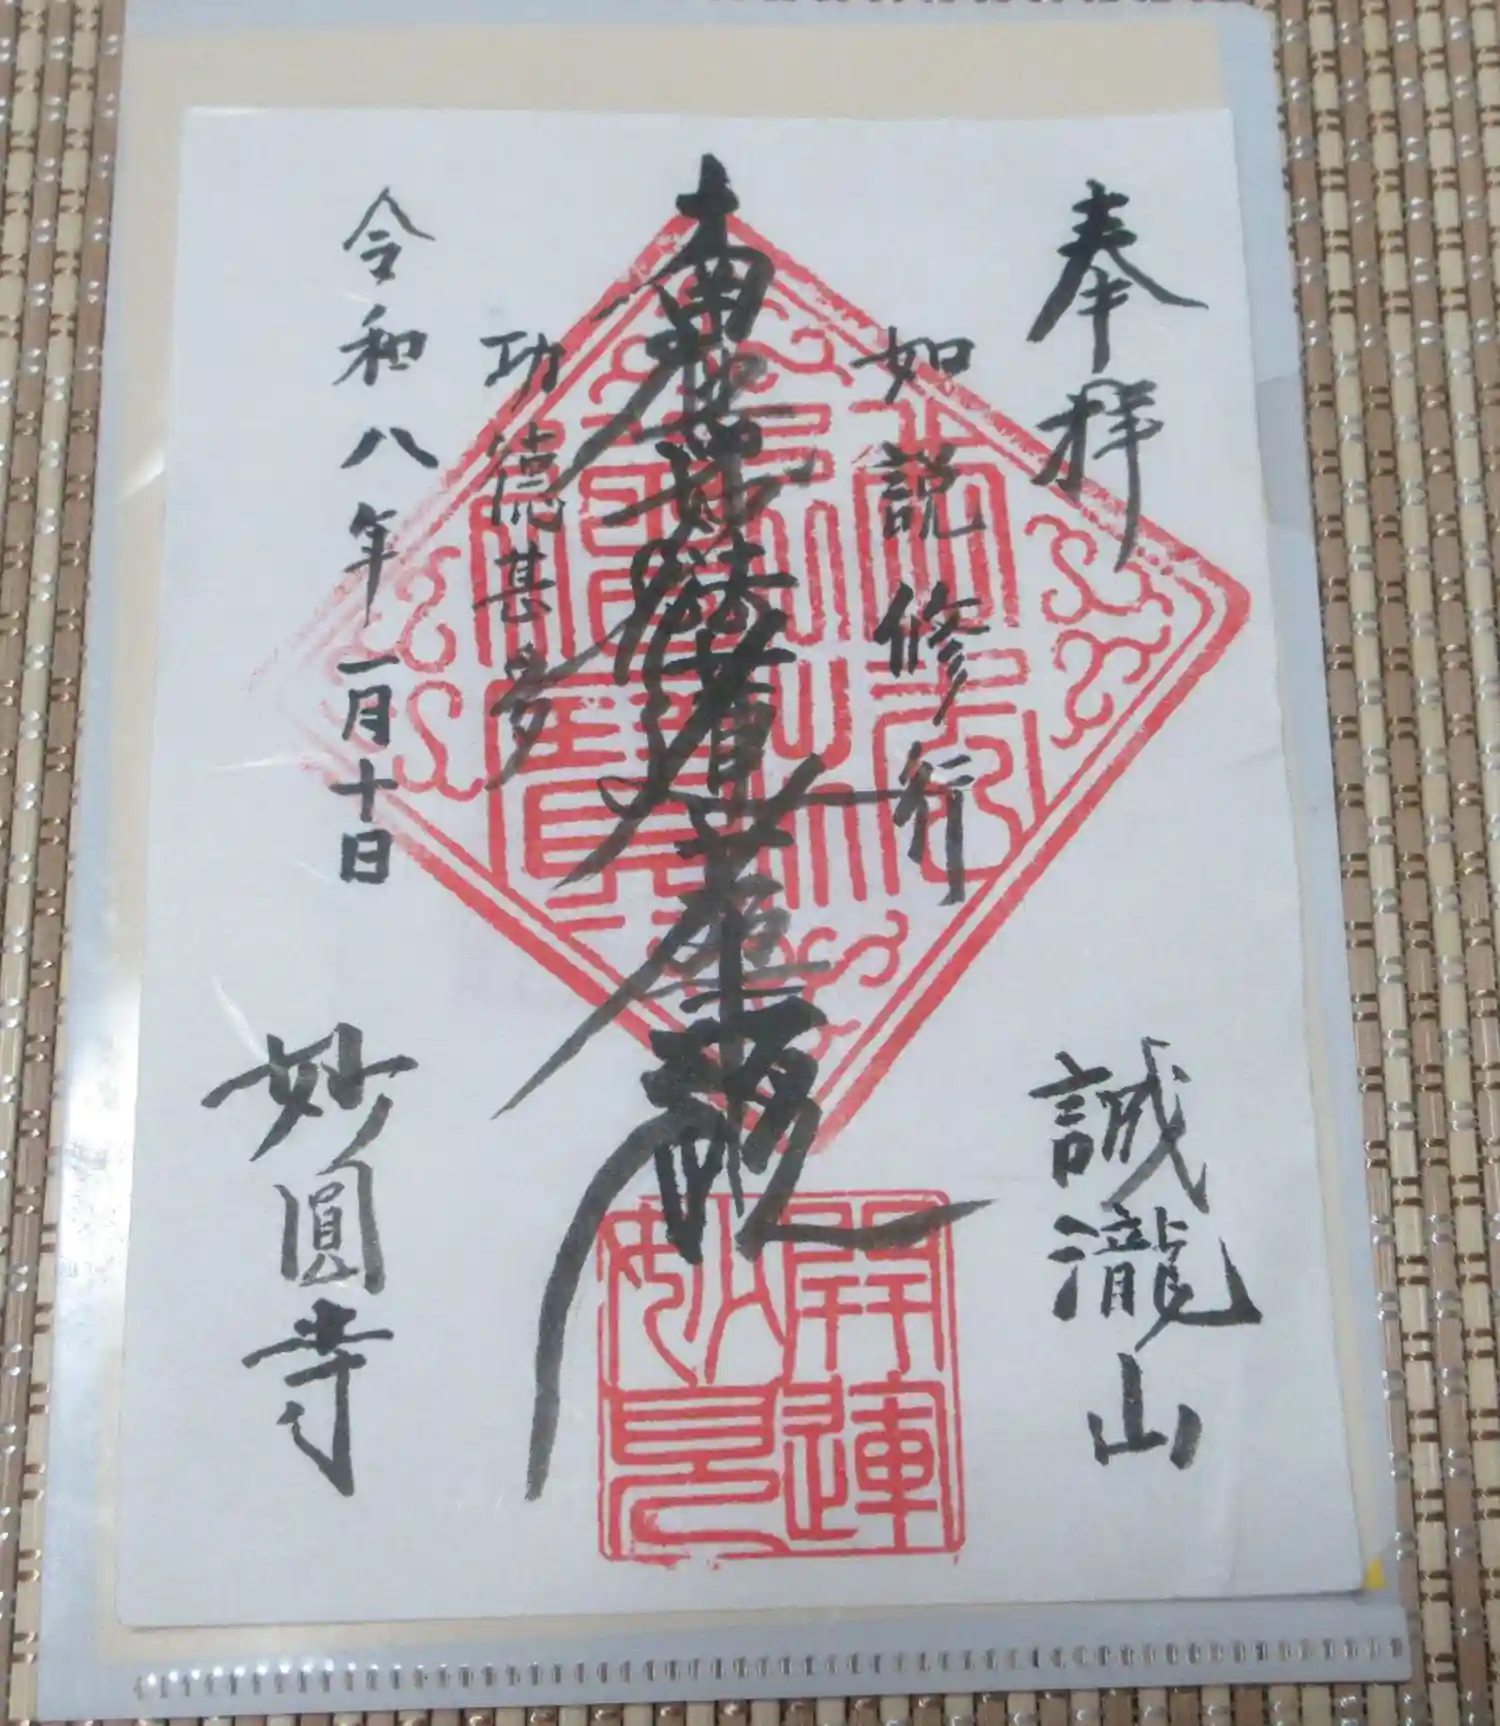 奉拝
誠瀧山
如説修行
南無妙法蓮華経
功徳甚多
令和八年一月十日
妙圓寺
開運
妙見